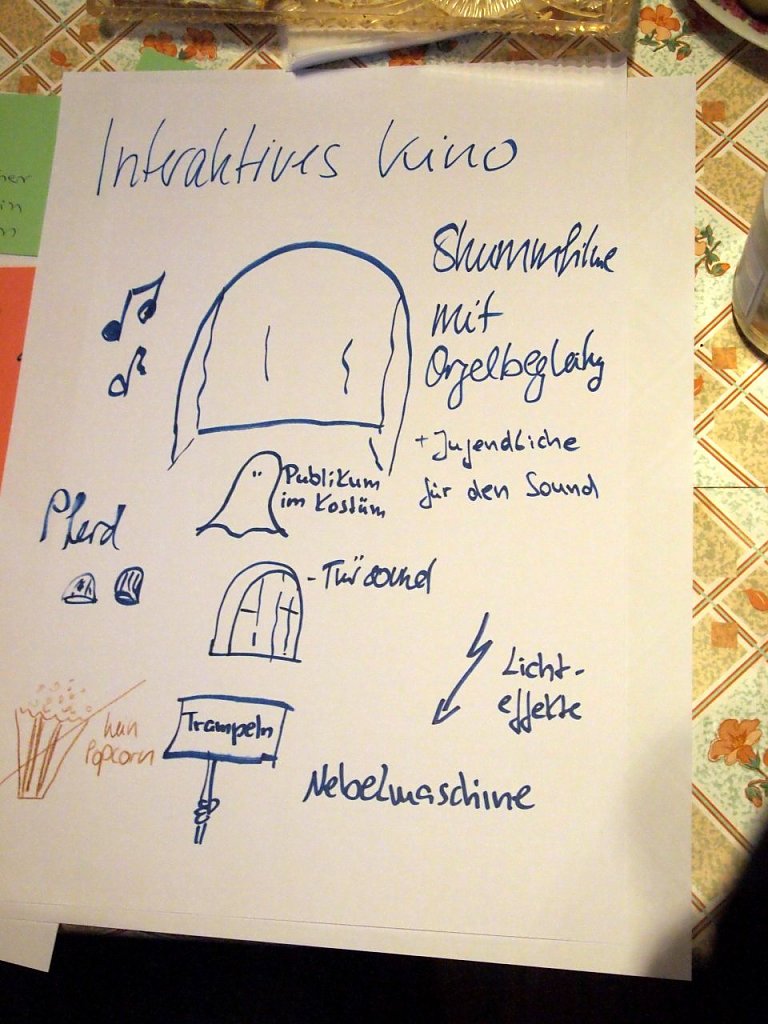 Interaktives Kino
Stummfilme
mit
Orgelbegleitg
+ Jugendliche
für den Sound
Publikum
im Kostüm
Pferd
- Türsound
Licht-
effekte
Trampeln
kein
Popcorn
Nebelmaschine